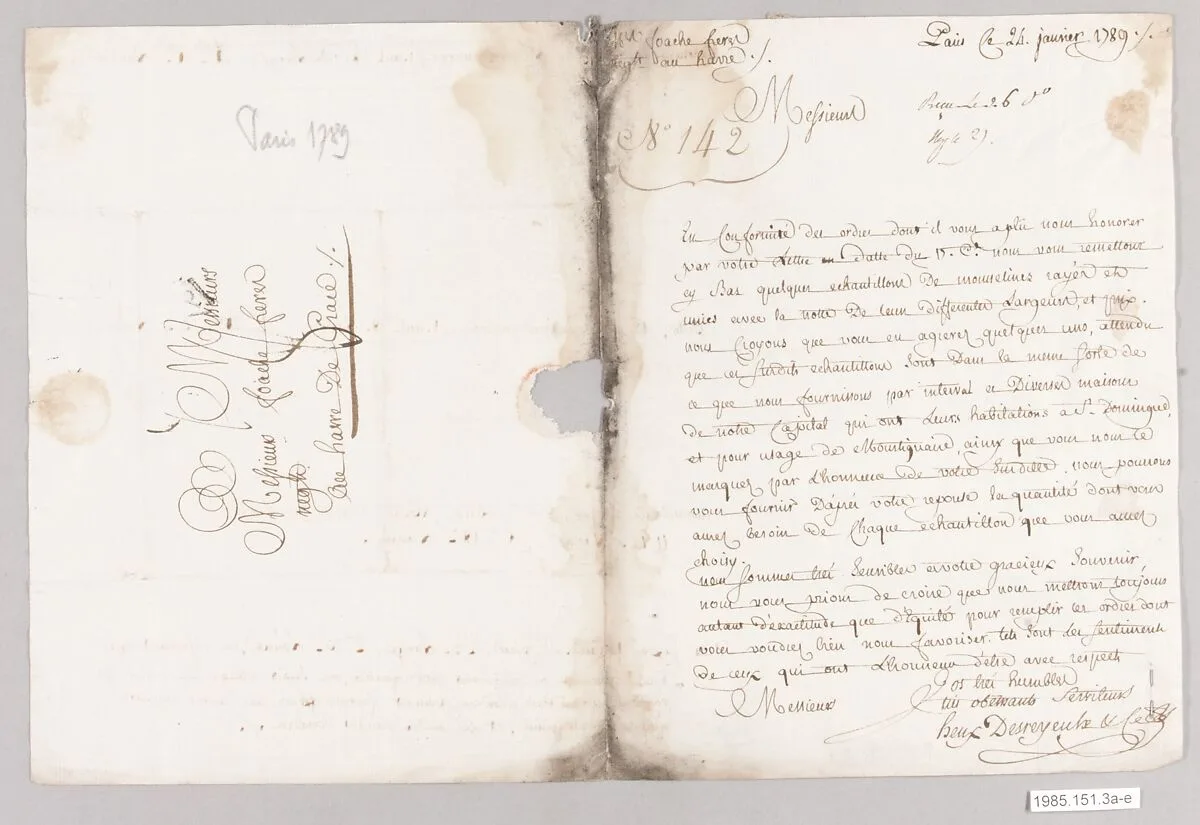 Paris 1789
Messieurs
Messieurs foache freres
negts
Au havre De Grace ./.
foache freres
negts au havre ./.
Paris Ce 24. janvier 1789 ./.
Messieurs
Recu Le 26 do
N° 142
En Conformité des ordres dont il vous a plû nous honorer
par votre Lettre en datte du 15. Ct. nous vous remettons
cy Bas quelques echantillons De mousselines rayés et
unies avec la notte De leurs differentes Largeurs, et prix.
nous Croyons que vous en agrerez quelques uns, attendu
que ces Susdits echantillons Sont Dans la meme Sorte de
ce que nous fournissons par interval a Diverses maisons
de notre Capital qui ont Leurs habitations a St. Domingue,
et pour usage de Moustiquaire, ainsy que vous nous le
marquez par L'honneur de votre Susditte. nous pourrons
vous fournir D'aprés votre reponse la quantité dont vous
aurez Besoin de Chaque echantillon que vous aurez
choisy.
nous Sommes trés Sensibles a votre gracieux Souvenir,
nous vous prions de croire que nous mettrons toujours
autant d'éxactitude que d'Equité pour remplir les ordres dont
vous voudrez bien nous favoriser. tels Sont les Sentiments
De ceux qui ont L'honneur d'être avec respect
Messieurs
Vos trés humbles
trés obeissants Serviteurs
heux Desreyeulx & Ce
1985.151.3a-e